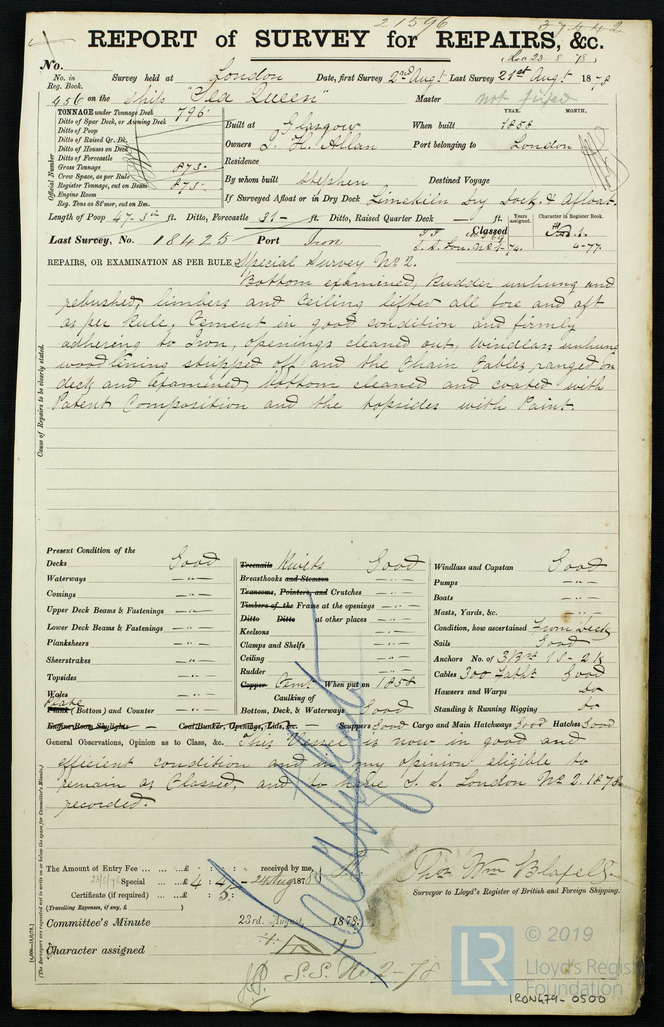 21596
37442
REPORT of SURVEY for REPAIRS, &c.
(Rec 23-8-'78)
No.
No. in Reg. Book. Survey held at London Date, first Survey 2nd Augt Last Survey 21st Augt 1878
456 on the Ship "Sea Queen" Master not fixed
TONNAGE under Tonnage Deck 796
Ditto of Spar Deck, or Awning Deck
Ditto of Poop
Ditto of Raised Qr. Dk.
Ditto of Houses on Deck
Ditto of Forecastle
Gross Tonnage 875.
Crew Space, as per Rule
Register Tonnage, cut on Beam 875.
Engine Room
Reg. Tons as St'mer, cut on Bm.
Official Number
YEAR. MONTH.
Built at Glasgow When built 1858
Owners J. H. Allan Port belonging to London
Residence
By whom built Stephen Destined Voyage
If Surveyed Afloat or in Dry Dock Limekiln Dry Dock & Afloat.
Length of Poop 47.5 ft. Ditto, Forecastle 31 - ft. Ditto, Raised Quarter Deck - ft.
Years assigned. Character in Register Book.
Last Survey, No. 18425 Port Iron Classed
S.S. Lon. No 1-74. 4-77.
REPAIRS, OR EXAMINATION AS PER RULE, Special Survey No 2.
Bottom examined, Rudder unhung and
rebushed, limbers and Ceiling lifted all fore and aft
as per Rule, Cement in good condition and firmly
adhering to Iron, openings cleaned out, windlass unhung
wood lining stripped off and the Chain Cables ranged on
deck and examined, bottom cleaned and coated with
Patent Composition and the topsides with Paint.
Cause of Repairs to be clearly stated.
Present Condition of the
Decks Good
Waterways - " -
Comings - " -
Upper Deck Beams & Fastenings - " -
Lower Deck Beams & Fastenings - " -
Planksheers - " -
Sheerstrakes - " -
Topsides - " -
Wales - " -
Plate
Plank (Bottom) and Counter - " -
Engine Room Skylights - Coal Bunker, Openings, Lids, &c. -
Treenails Rivets Good
Breasthooks and Stemson - " -
Transoms, Pointers, and Crutches - " -
Timbers of the Frame at the openings - " -
Ditto Ditto at other places - " -
Keelsons - " -
Clamps and Shelfs - " -
Ceiling - " -
Rudder - " -
Copper Cemt When put on 1858
Caulking of
Bottom, Deck, & Waterways Good
Windlass and Capstan Good
Pumps - " -
Boats - " -
Masts, Yards, &c. - " -
Condition, how ascertained From Deck
Sails Good
Anchors No. of 3 B
Cables 300 Faths Good
Hausers and Warps Do
Standing & Running Rigging Do
Scuppers Good Cargo and Main Hatchways Good Hatches Good
General Observations, Opinion as to Class, &c. This Vessel is now in good and
efficient condition and in my opinion eligible to
remain as Classed, and to have S. S. London No 2. 1878
recorded.
The Amount of Entry Fee ... £ : : received by me,
Special ... £ 4 : 4 : - 24 Aug 1878
Certificate (if required) ... £ : 5 :
(Travelling Expenses, if any, £ )
Thos Wm Blafell.
Surveyor to Lloyd's Register of British and Foreign Shipping.
Committee's Minute 23rd August, 1878.
Character assigned
S.S. No 2-78
(The Surveyors are requested not to write on or below the space for Committee's Minute.)
LR
© 2019
Lloyd's Register
Foundation
IRON479-0500